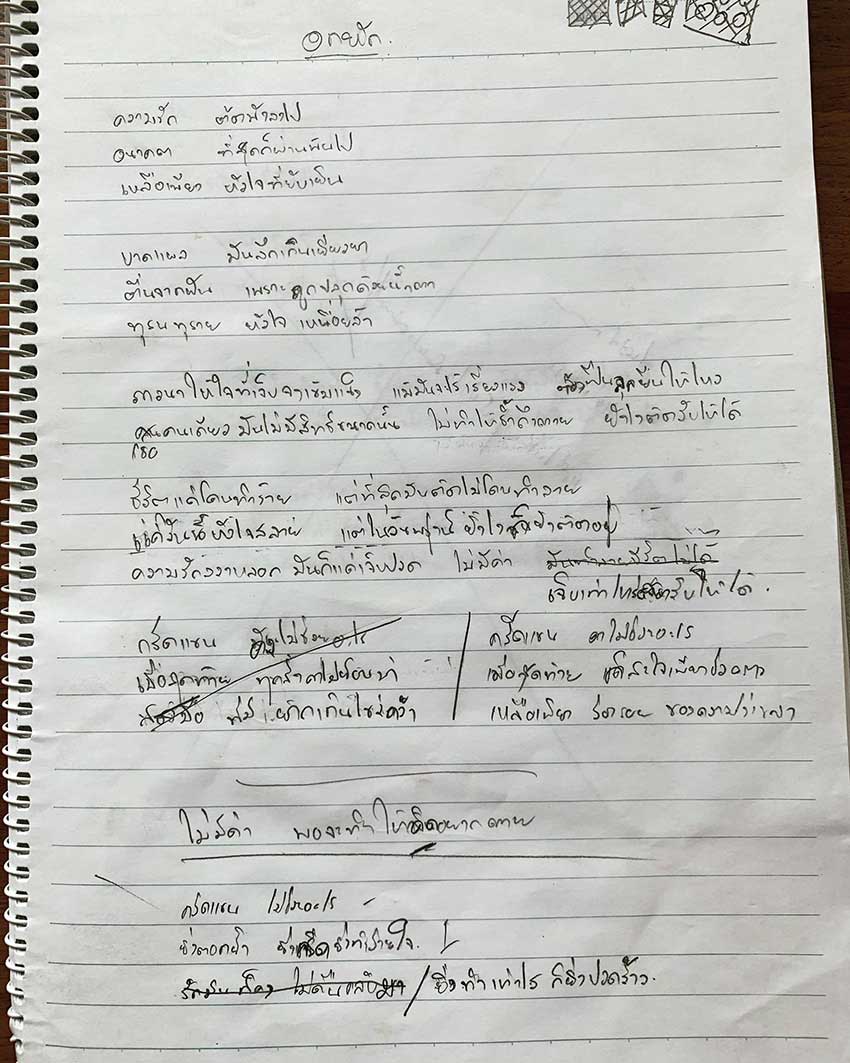 อกหัก.
ความรัก ต้องบอกลาไป
อนาคต ที่สุดก็ผ่านพ้นไป
เหลือเพียง หัวใจที่ยับเยิน
บาดแผล มันลึกเกินเยียวยา
ตื่นจากฝัน เพราะถูกปลุกด้วยน้ำตา
ทุรนทุราย หัวใจ เหนื่อยล้า
ภาวนาให้ใจที่เจ็บจงเข้มแข็ง แม้มันจะไร้เรี่ยวแรง ต้องฝืนลุกยืนให้ไหว
คนคนเดียว มันไม่มีสิทธิ์ขนาดนั้น ไม่ทำให้ช้ำถึงตาย
เธอ
ชีวิตแค่โดนทำร้าย แต่ที่สุดมันต้องไม่โดนทำลาย
แค่วันนี้หัวใจสลาย แต่ในวันพรุ่งนี้
ความรักลวงหลอก มันก็แค่เจ็บปวด ไม่มีค่า มันทำลายชีวิตไม่ได้
เจ็บเท่าไหร่ ให้ได้.
กรีดแขน ไม่ช่วยอะไร
กรีดแขน ไม่ช่วยอะไร
เมื่อสุดท้าย
เมื่อสุดท้าย แค่สะใจเพียงชั่วคราว
เหลือเพียง ร่องรอย ของความว่างเปล่า
ไม่มีค่า พอจะทำให้ อยากตาย
กรีดแขน ไม่ช่วยอะไร
ยิ่งตอกย้ำ ยิ่งกรีด ยิ่งทำร้ายใจ.
ยิ่งทำเท่าไร ก็ยิ่งปวดร้าว.